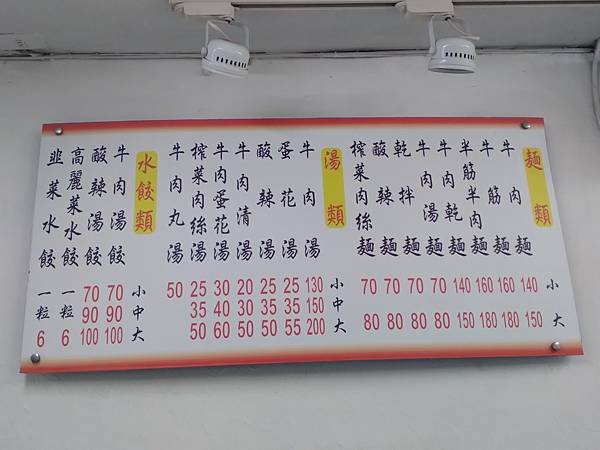 麵類 小 大
牛肉麵 140 150
牛筋麵 160 180
半筋半肉麵 160 180
牛肉乾麵 140 150
牛肉湯麵 70 80
乾拌麵 70 80
酸辣麵 70 80
榨菜肉絲麵 70 80
湯類 小 中 大
牛肉湯 130 150 200
蛋花湯 25 35 55
酸辣湯 25 35 50
牛肉清湯 20 30 50
牛肉蛋花湯 30 40 60
榨菜肉絲湯 25 35 50
牛肉丸湯 50
水餃類 小 中 大
牛肉湯餃 70 90 100
酸辣湯餃 70 90 100
高麗菜水餃 一粒 6
韭菜水餃 一粒 6